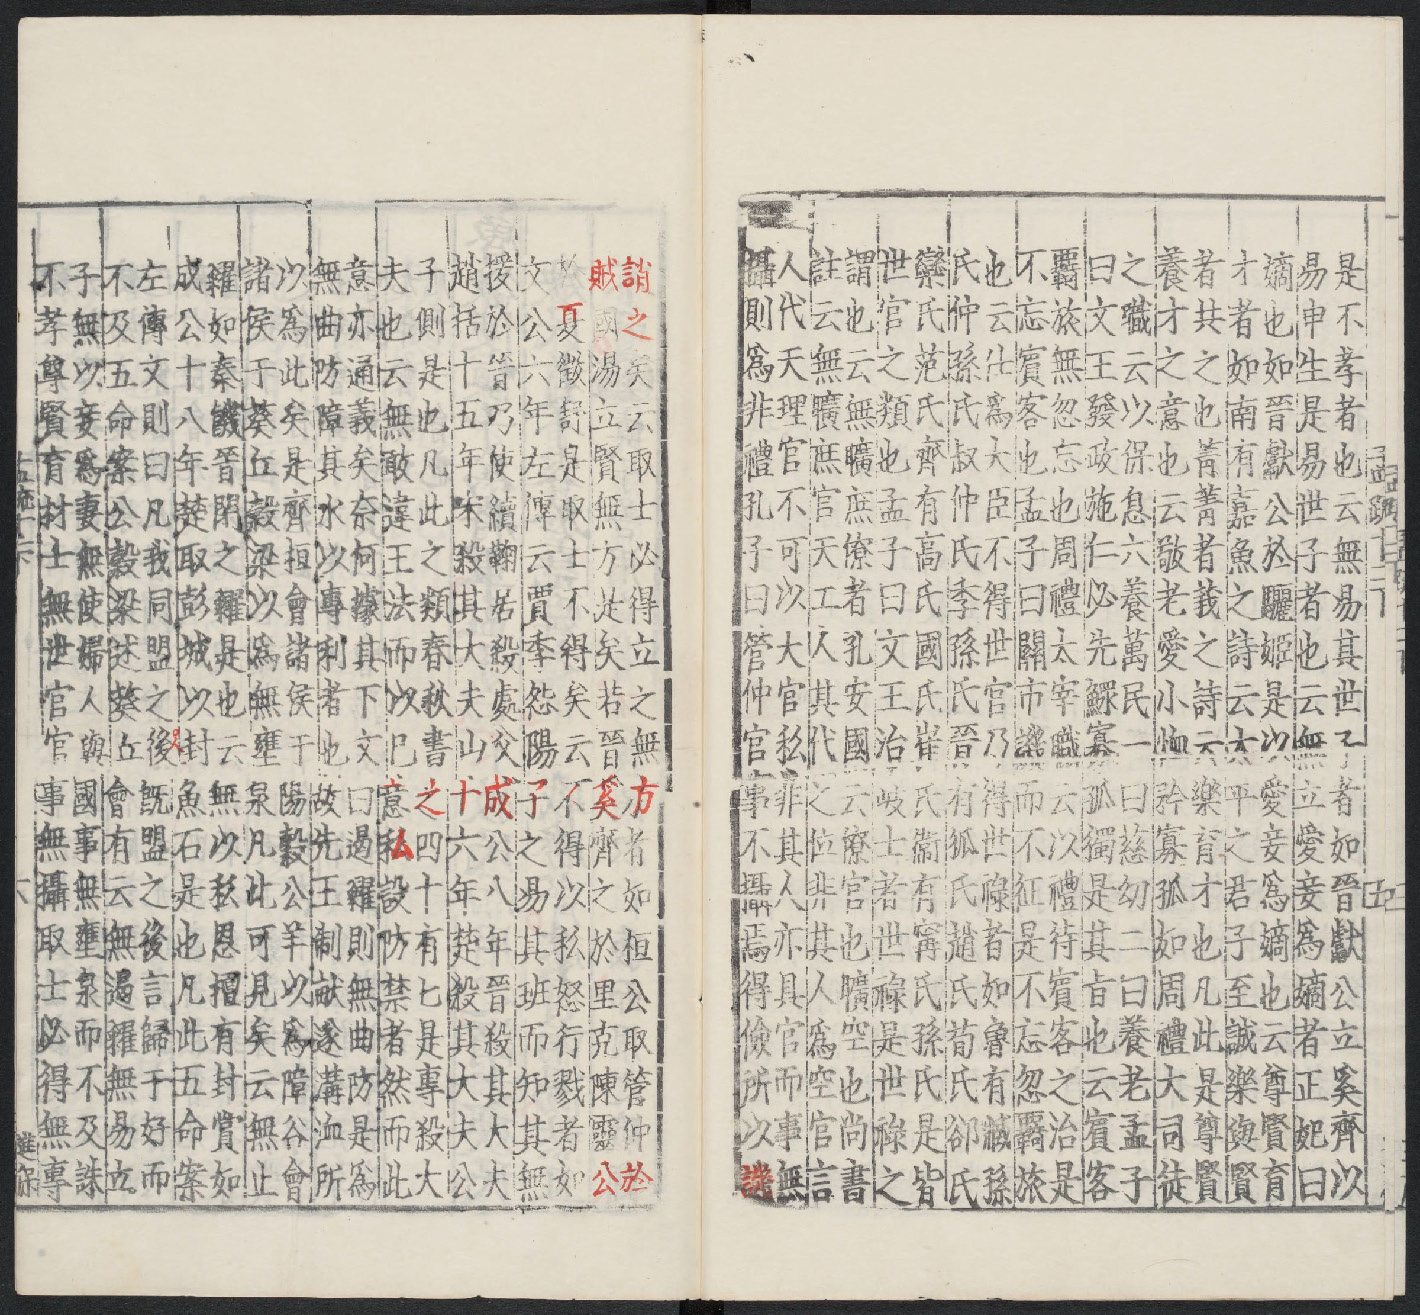 是不孝者也云無易其世子者如晉獻公立奚齊以
易申生是易世子者也云無立愛妾為嫡者正妃曰
嫡也如晉獻公於驪姬是以愛妾為嫡也云尊賢育
才者如南有嘉魚之詩云太平之君子至誠樂與賢
者共之也菁菁者莪之詩云樂育才也凡此是尊賢
養才之意也云敬老愛小恤矜寡孤如周禮大司徒
之職云以保息六養萬民一曰慈幼二曰養老孟子
曰文王發政施仁必先鰥寡孤獨是其旨也云賓客
羈旅無忽忘也周禮太宰職云以禮待賓客之治是
不忘賓客也孟子曰關市譏而不征是不忘忽羈旅
也云仕為大臣不得世官乃得世祿者如魯有臧孫
氏仲孫氏叔仲氏季孫氏晉有狐氏趙氏荀氏郤氏
欒氏范氏齊有高氏國氏崔氏衛有甯氏孫氏是皆
世官之類也孟子曰文王治岐士者世祿是世祿之
謂也云無曠庶僚者孔安國云僚官也曠空也尚書
註云無曠庶官天工人其代之位非其人為空官言
人代天理官不可以大官私非其人亦具官而事無
攝則為非禮孔子曰管仲官事不攝焉得儉所以譏
誚之矣云取士必得立之無方者如桓公取管仲於
賊國湯立賢無方是矣若晉奚齊之於里克陳靈公
於夏徵舒是取士不得矣云不得以私怒行戮者如
文公六年左傳云賈季怨陽子之易其班而知其無
援於晉乃使續鞫居殺處父成公八年晉殺其大夫
趙括十五年宋殺其大夫山十六年楚殺其大夫公
子側是也凡此之類春秋書之四十有七是專殺大
夫也云無敢違王法而以已意私設防禁者然而此
意亦通義矣奈何據其下文曰遏糴則無曲防是為
無曲防障其水以專利者也故先王制畎遂溝洫所
以為此矣是齊桓會諸侯于陽穀公羊以為障谷會
諸侯于葵丘穀梁以為無壅泉凡此可見矣云無止
糴如秦饑晉閉之糴是也云無以私恩擅有封賞如
成公十八年楚取彭城以封魚石是也凡此五命案
左傳文則曰凡我同盟之後既盟之後言歸于好而
不及五命案公穀梁述葵丘會有云無遏糴無易立
子無以妾為妻無使婦人與國事無壅泉而不及誅
不孝尊賢育材士無世官官事無攝取士必得無專